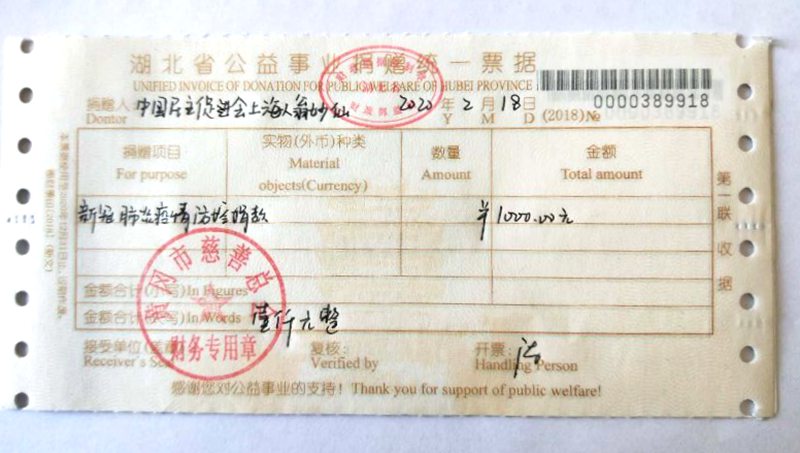 湖北省公益事业捐赠统一票据
UNIFIED INVOICE OF DONATION FOR PUBLIC WELFARE OF HUBEI PROVINCE
捐赠人: 中国民主促进会上海人翁妙仙 2020 年 2 月 18 日 0000389918
Dontor Y M D (2018)№
捐赠项目 实物(外币)种类 数量 金额
For purpose Material Amount Total amount
objects(Currency)
新冠肺炎疫情防控捐款 ¥1000.00元
金额合计(小写)In Figures
金额合计(大写)In Words 壹仟元整
接受单位(盖章) 复核: 开票:
Receiver's Seal Verified by Handling Person
感谢您对公益事业的支持! Thank you for support of public welfare!
第一联收据
黄冈市慈善总会
财务专用章